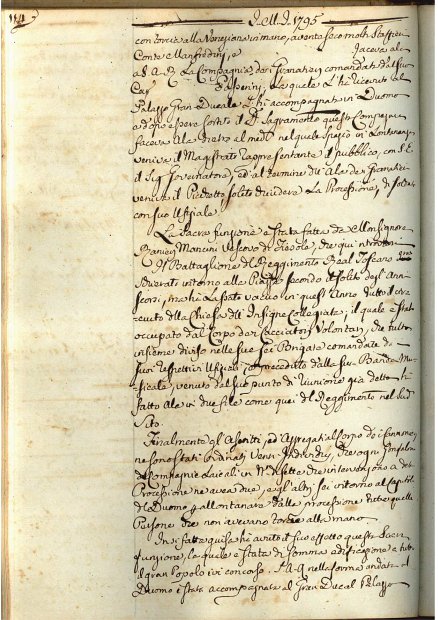 1795
con torcia alla Veneziana in mano, aventa seco molti Staffieri
Conte Manfredini, e faceva ale
a S. A. R. La Compagnia dei Granatieri comandati dal suo
Cap. la quale L'ha ricevuto al
Palazzo Gran Ducale e L'ha accompagnata in Duomo
esposto il SS. Sagramento questa Compagnia
faceva Ala dietro al med.
veniva il Magistrato rappresentante il pubblico, con S. E.
il Sig. Governatore, ed al termine dell' Ala dei Granatieri
veniva il Picchetto solito dividere La Processione, di Soldati
con suo Ufiziale
La Sacra funzione è stata fatta da Monsignore
Ranieri Mancini Vescovo di Fiesole, che qui
Il Battaglione del Reggimento Real Toscano
intorno alla Piazza secondo il solito degl' Anni
scorsi, ma ha Lasciato vacuo in quest' Anno tutto il
della Chiesa dell' Insigne Collegiata, il quale è stato
occupato dal Corpo dei Cacciatori Volontari, che tutto
insieme diviso nelle sue sei Brigate comandate da
suoi respettivi Ufiziali, e preceduto dalla sua Banda Mu-
sicale, venuto dal suo punto di riunione già detto ha
fatto Ala in due file come quei del Reggimento nel sud.
Sito.
Finalmente gl' Ascritti, ed Aggregati al Corpo
ne sono stati ordinati Venti Individui, che ogni
di Compagnie Laicali in N. di sette che intervengono a det.
Processione ne avea due, e gl' altri sei intorno al
di Duomo allontanare dalla processione tutte quelle
Persone che non avevano torcia alla mano.
In fatti quasi ha avuto il suo effetto questa Sacra
funzione, la quale è stata di somma a tutto
il gran Popolo ivi concorso. S. A. R. nella forma andata al
Duomo è stata accompagnata al Gran Ducal Palazzo